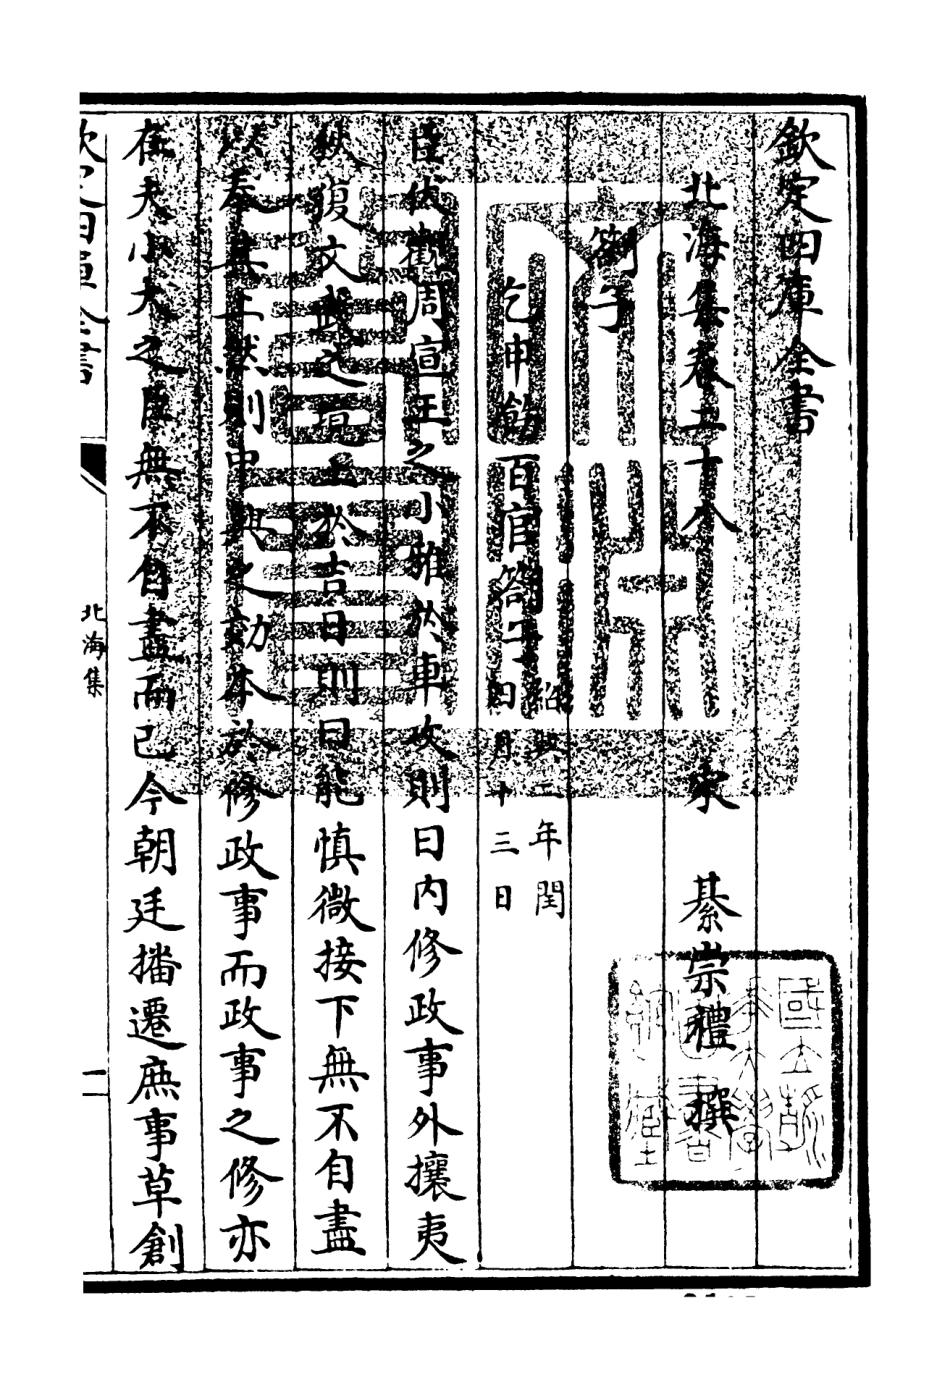 欽定四庫全書
北海集卷二十八
宋 綦崇禮 撰
劄子
乞申飭百官劄子紹興二年閏四月十三日
臣伏觀周宣王之小雅於車攻則曰內修政事外攘夷
狄復文武之境土於吉日則曰能慎微接下無不自盡
以奉其上然則中興之功本於修政事而政事之修亦
在夫小大之臣無不自盡而已今朝廷播遷庶事草創
欽定四庫全書
北海集
一